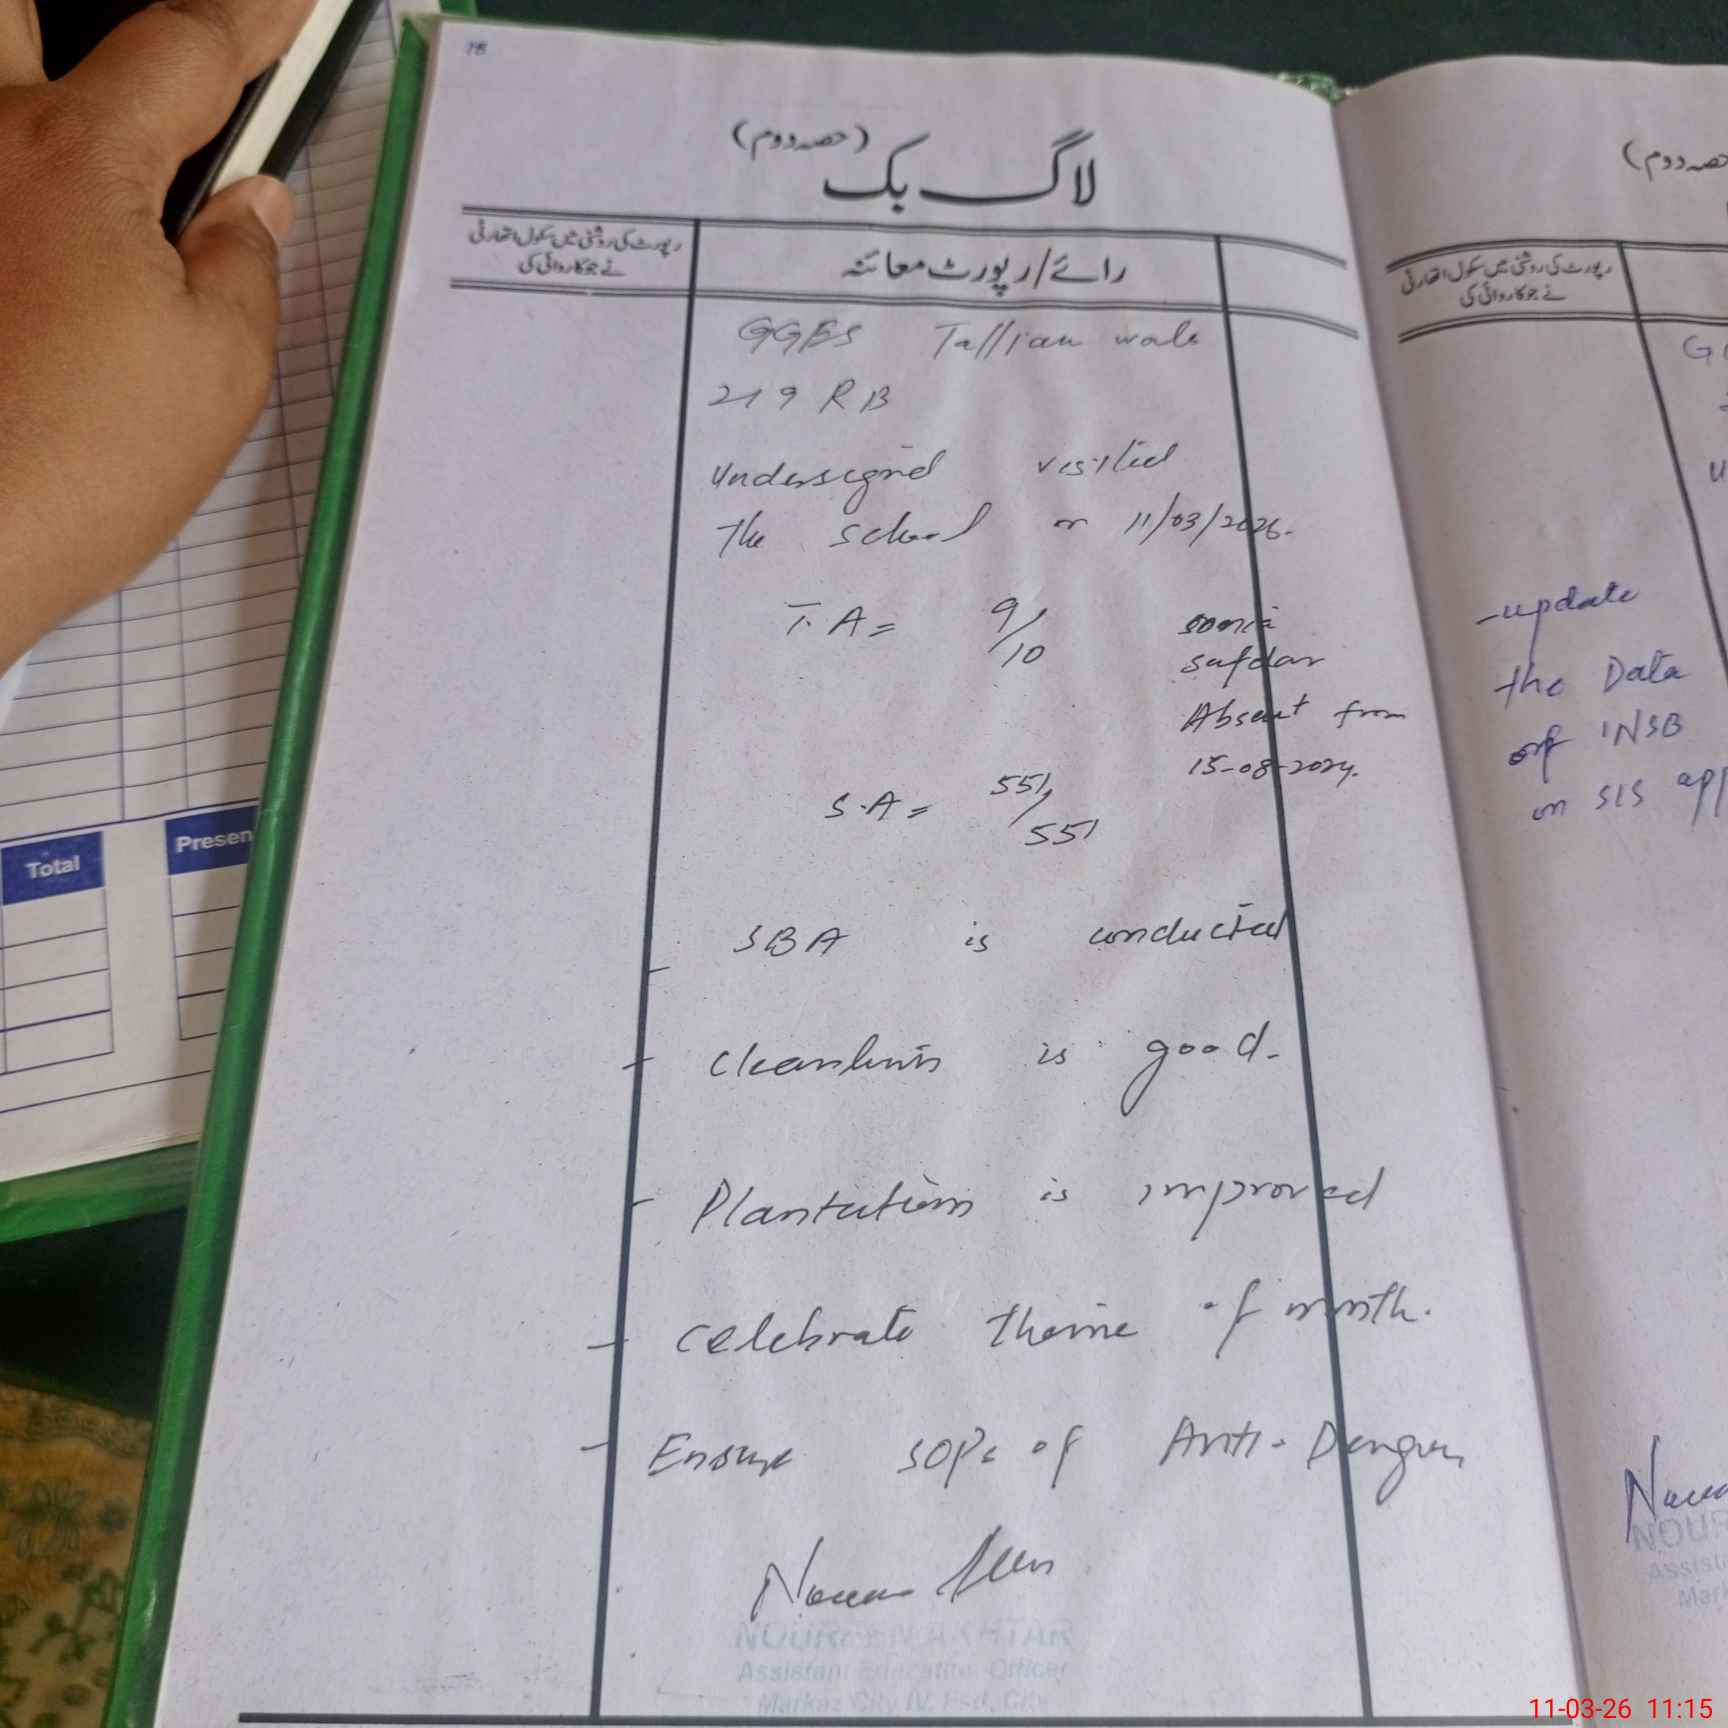 لاگ بک (حصہ دوم)
رپورٹ کی روشنی میں سکول اتھارٹی
نے جو کاروائی کی
رائے/رپورٹ معائنہ
GGES Tallian wala
219 RB
Undersigned visited
The school on 11/03/2026.
T.A = 9/10
sonia
safdar
Absent from
15-08-2024.
S.A = 551/551
SBA is conducted
- Cleanliness is good.
- Plantation is improved
- Celebrate theme of month.
- Ensure SOPs of Anti-Dengue
NOUREEN AKHTAR
Assistant Education Officer
Markaz City IV, Fsd, City
حصہ دوم)
رپورٹ کی روشنی میں سکول اتھارٹی
نے جو کاروائی کی
-update
the Data
of INSB
on SIS app
NOUR
Assist
Mar
Total
Presen
11-03-26 11:15